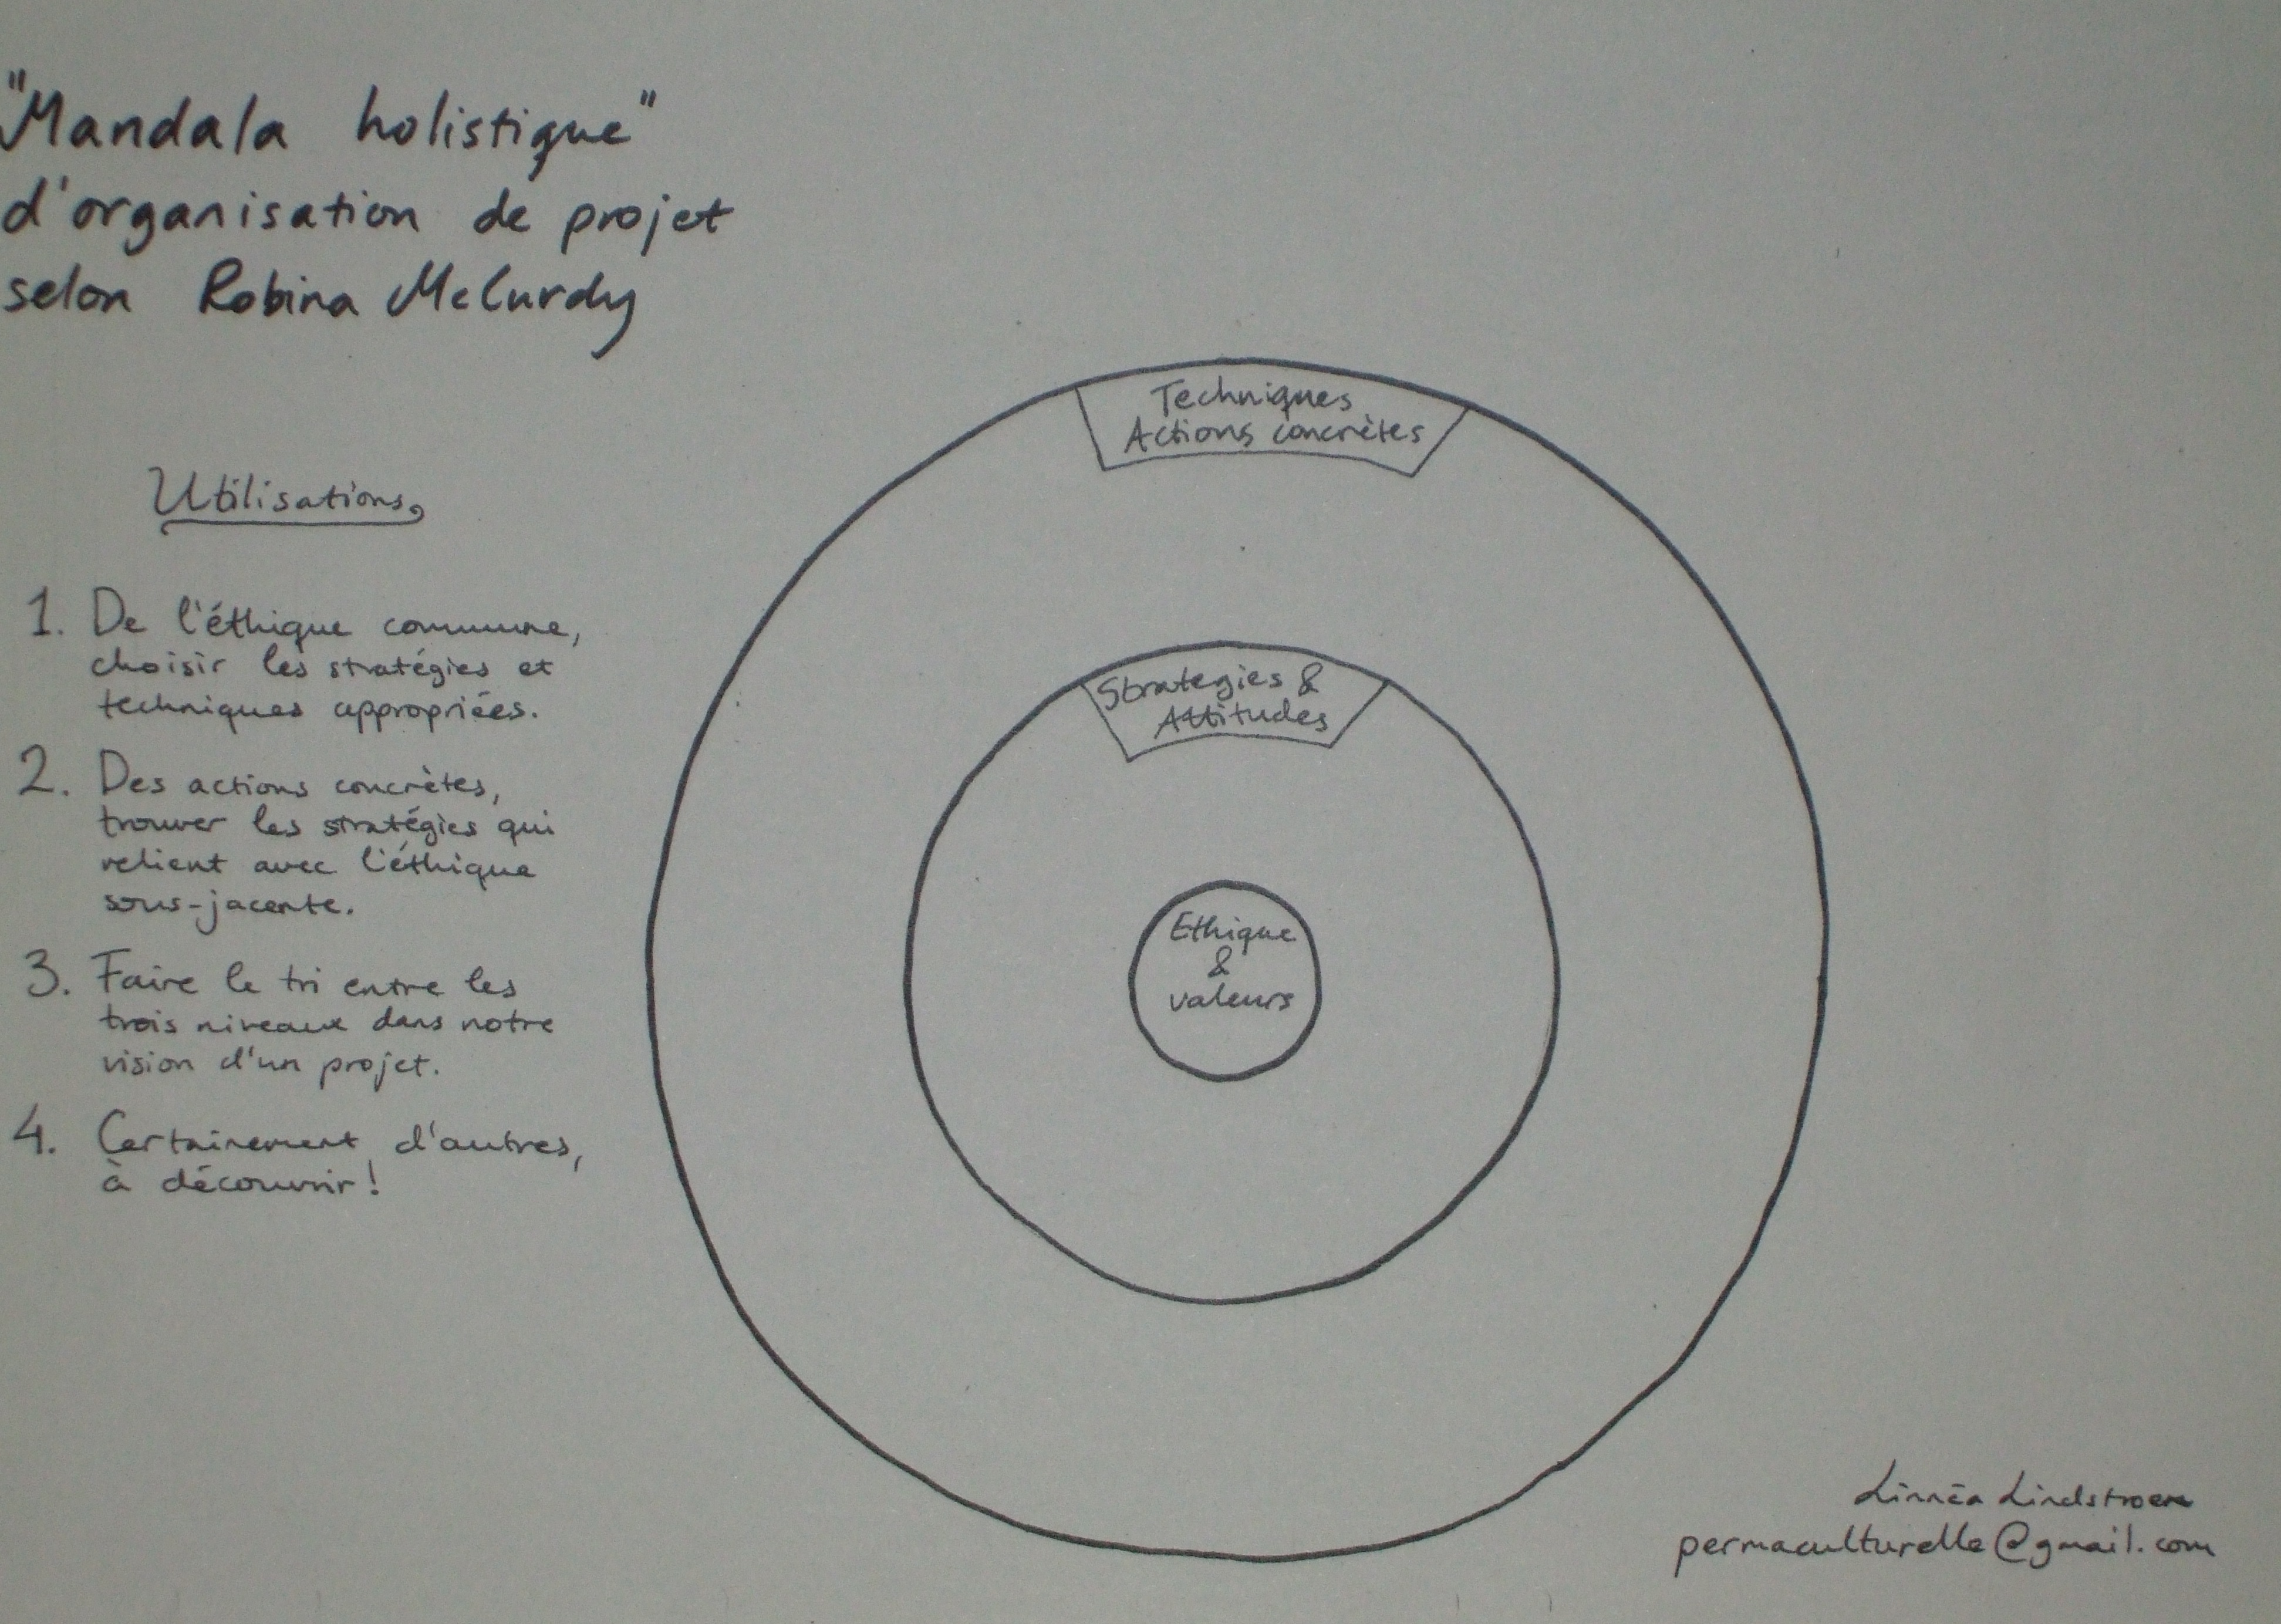 "Mandala holistique"
d'organisation de projet
selon Robina McCurdy
Utilisations
1. De l'éthique commune,
choisir les stratégies et
techniques appropriées.
2. Des actions concrètes,
trouver les stratégies qui
relient avec l'éthique
sous-jacente.
3. Faire le tri entre les
trois niveaux dans notre
vision d'un projet.
4. Certainement d'autres,
à découvrir!
Techniques
Actions concrètes
Strategies &
Attitudes
Ethique
&
valeurs
Linnéa Lindstroem
permaculturelle@gmail.com